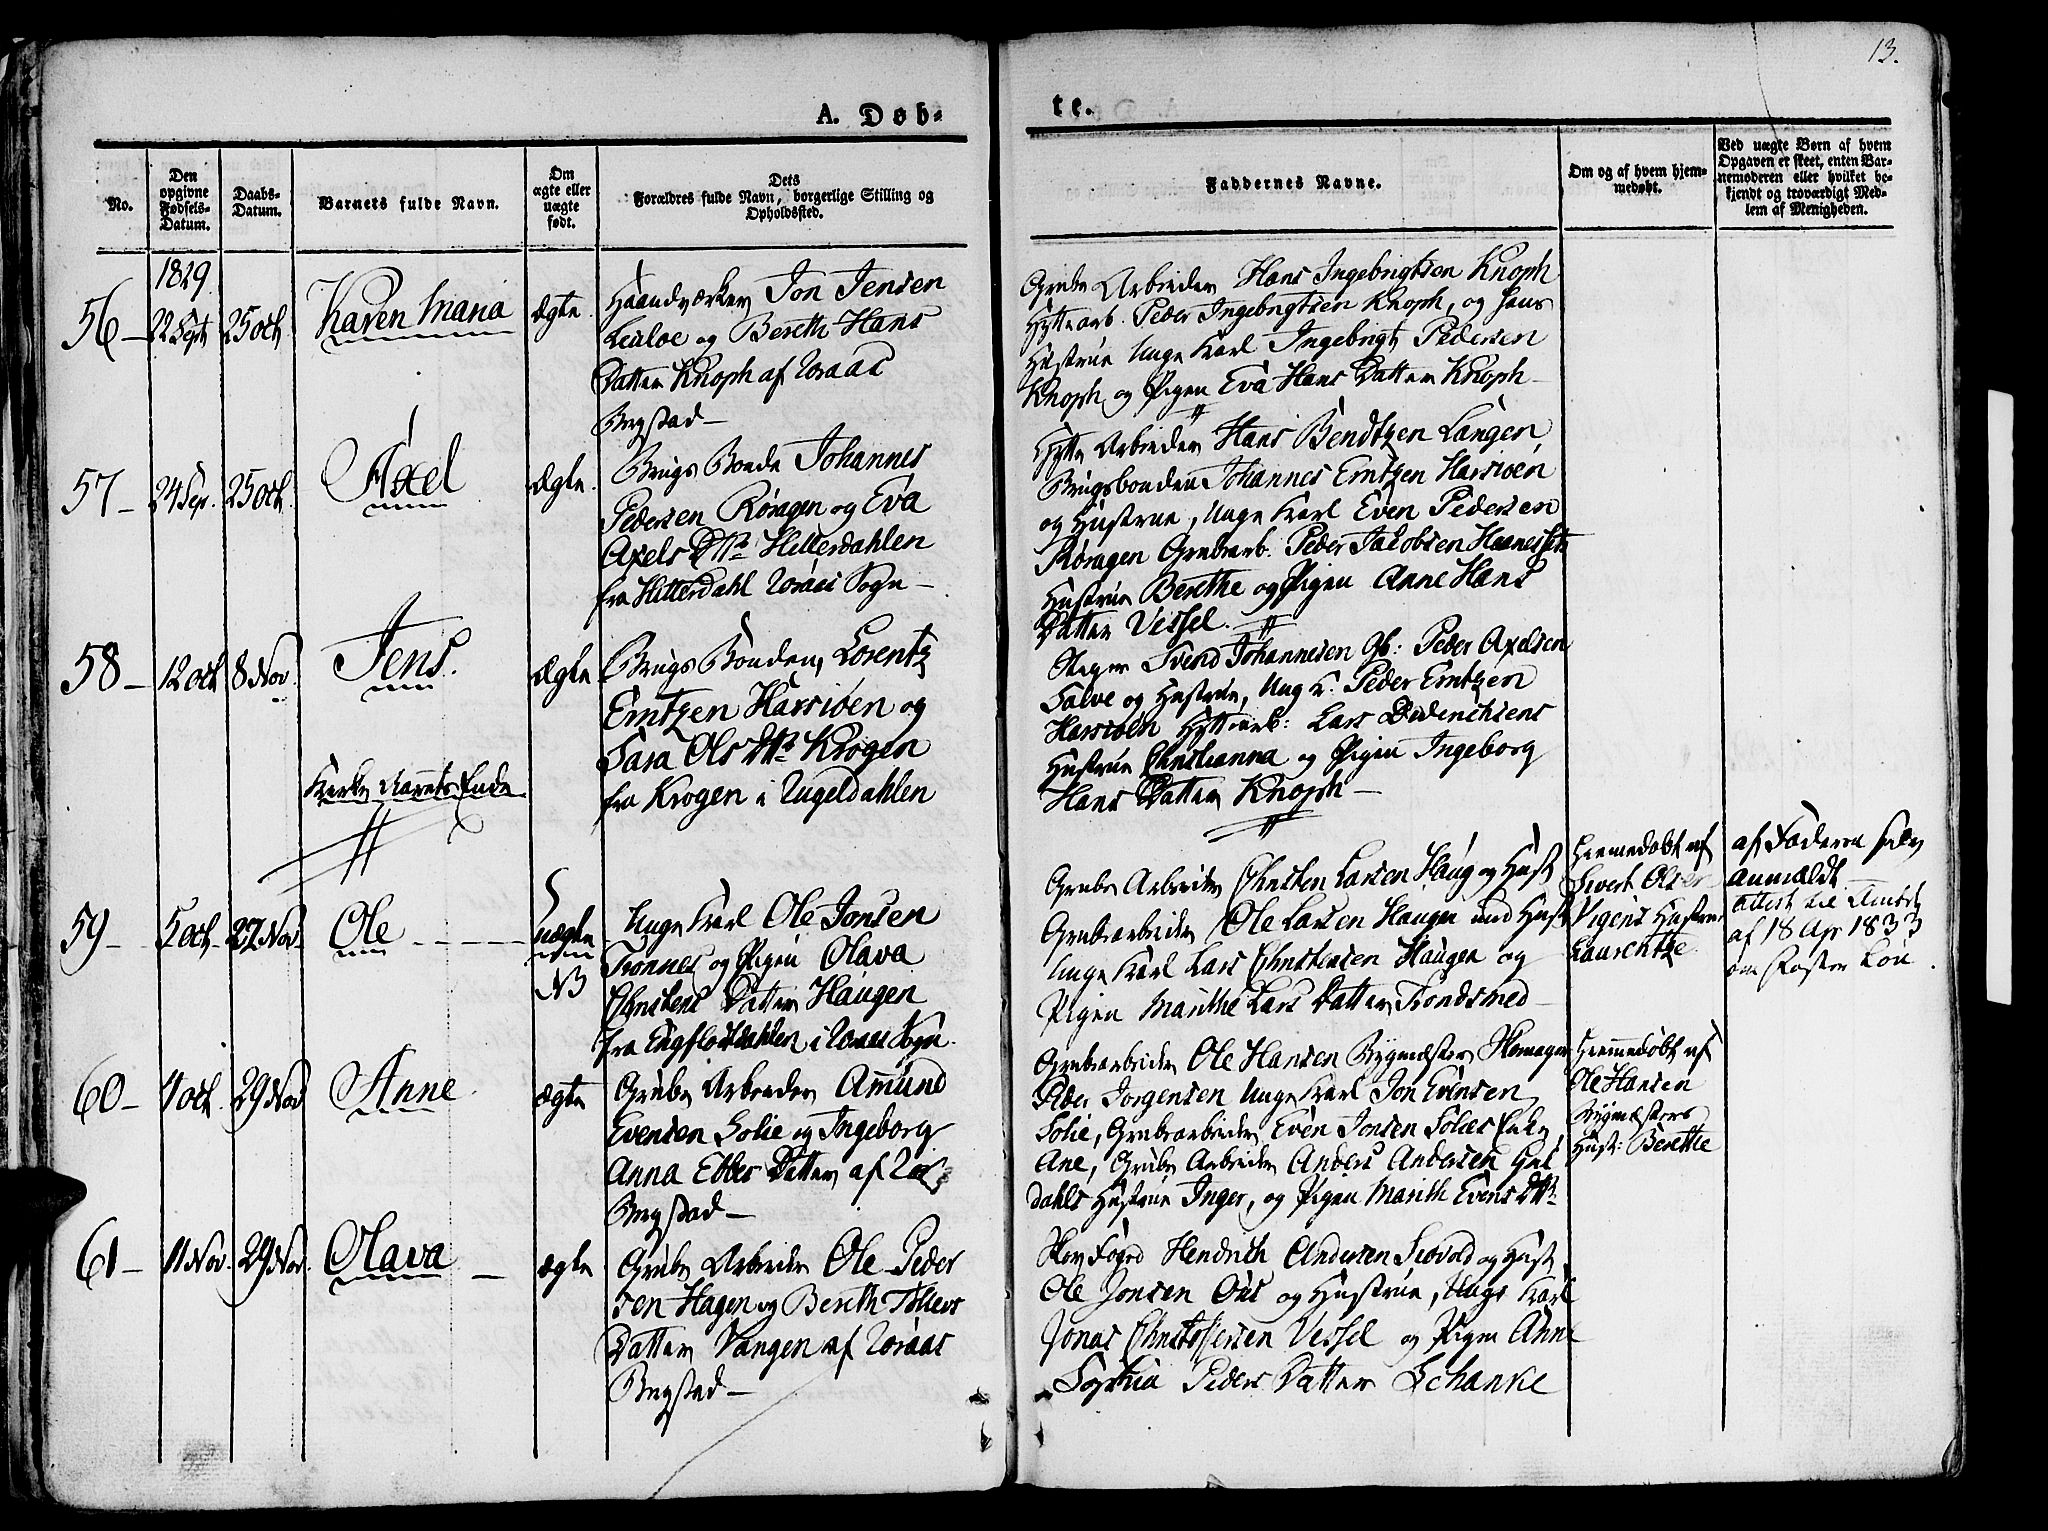 13.
A. Døb-
te.
No.
Den opgivne Fødsels-Datum.
Daabs-Datum.
Barnets fulde Navn.
Om ægte eller uægte født.
Dets
Forældres fulde Navn, borgerlige Stilling og
Opholdssted.
Faddernes Navne.
Om og af hvem hjem-
medøbt.
Ved uægte Børn af hvem
Opgaven er skeet, enten Bar-
nemoderen eller hvilket be-
kjendt og troværdigt Med-
lem af Menigheden.
1829
56 – 22 Sept 25 Oct Karen Maria Ægte.
Haandværker Jon Jensen
og Bereth Hans
Datter Knoph af Røraas
Bergstad –
Grube Arbeider Hans Ingebrigtsen Knoph
Hyttearb. Peder Ingebrigtsen Knoph, og hans
Hustrue Unge Karl Ingebrigt Pedersen
Knoph, og Pigen Eva Hans Datter Knoph –
57 – 24 Sep. 25 Oct. Axel Ægte.
Brugs Bonde Johannes
Pedersen Røragen og Eva
Axels Dtr Hitterdahlen
fra Hitterdahl Røraas Sogn –
Hytte Arbeider Hans Bendtzen Langen,
Brugsbonden Johannes Erntzen Harsioen
og Hustrue, Unge Karl Even Pedersen
Røragen Grubearb. Peder Jacobsen
Hustrue Berethe og Pigen Anne Hans
Datter Vessel.
58 – 12 Oct 8 Nov. Jens. Ægte
Brugs Bonden, Lorentz
Erntzen Harsioen og
Sara Ols Dtr Krogen
fra Krogen i Rugeldahlen
Svend Johannesen Gb: Peder Axelsen
Galve og Hustrue, Ung K. Peder Erntzen
Harsioen Hyttearb: Lars Diderichsens
Hustrue Christianna og Pigen Ingeborg
Hans Datter Knoph –
Kirke Aarets Ende
59 – 5 Oct. 22 Nov. Ole – uægte
NB
Unge Karl Ole Jonsen
Tronnes og Pigen Olava
Christens Datter Haugen
fra i Røraas Sogn.
Grube Arbeider Christen Larsen Haug og Hust
Grubearbeider Ole Larsen Haugen med Hust
Unge Karl Lars Christensen Haugen og
Pigen Marithe Lars Datter Trondsmed –
Hiemmedøbt af
Sivert Olsen
Vigens Hustrue
Laurentze
af Faderen selv
anmeldt
Attest til Amtet
af 18 Apr 1833
60 – 4 Oct. 29 Nov Anne Ægte
Grube Arbeider Amund
Evensen Solie og Ingeborg
Anna Ebbes Datter af
Bergstad –
Grubearbeider Ole Hansen Bygmæster
Peder Jorgensen Unge Karl Jon Evensen
Solie, Grubearbeider Even Jonsen Solies Enke,
Ane, Grube Arbeider Anders Andersen Gul
dahls Hustrue Inger, og Pigen Marith Evens Dtr
Hiemmedøbt af
Ole Hansen
Bygmæsters
Hust: Berethe
61 – 11 Nov. 29 Nov. Olava – ægte
Grube Arbeider Ole Peder
sen Hagen og Bereth Tollevs
Datter Vangen af Røraas
Bergstad –
Skov Foged Hendrich Andersen og Hust
Ole Jonsen Ous og Hustrue, Unge Karl
Jonas Christophersen Vessel og Pigen Anne
Sophia Peders Datter Schanke